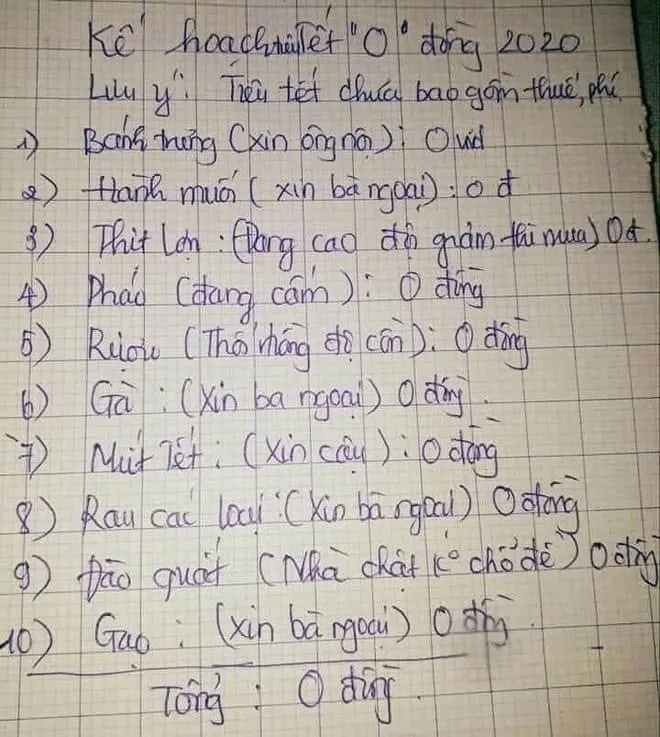 Kế hoạch tiêu Tết "0" đồng 2020
Lưu ý: Tiêu tết chưa bao gồm thuế, phí
1) Bánh trưng (xin ông nội): 0 vnd
2) Hành muối (xin bà ngoại): 0 đ
3) Thịt Lợn: (Đang cao đợi giảm thì mua) 0đ.
4) Pháo (đang cấm): 0 đồng
5) Rượu (Thổi nồng độ cồn): 0 đồng
6) Gà: (xin bà ngoại) 0 đồng.
7) Mứt Tết: (xin cậu): 0 đồng
8) Rau các loại: (Xin bà ngoại) 0 đồng
9) Đào quất (Nhà chật ko chỗ để) 0 đồng
10) Gạo: (xin bà ngoại) 0 đồng.
Tổng: 0 đồng.